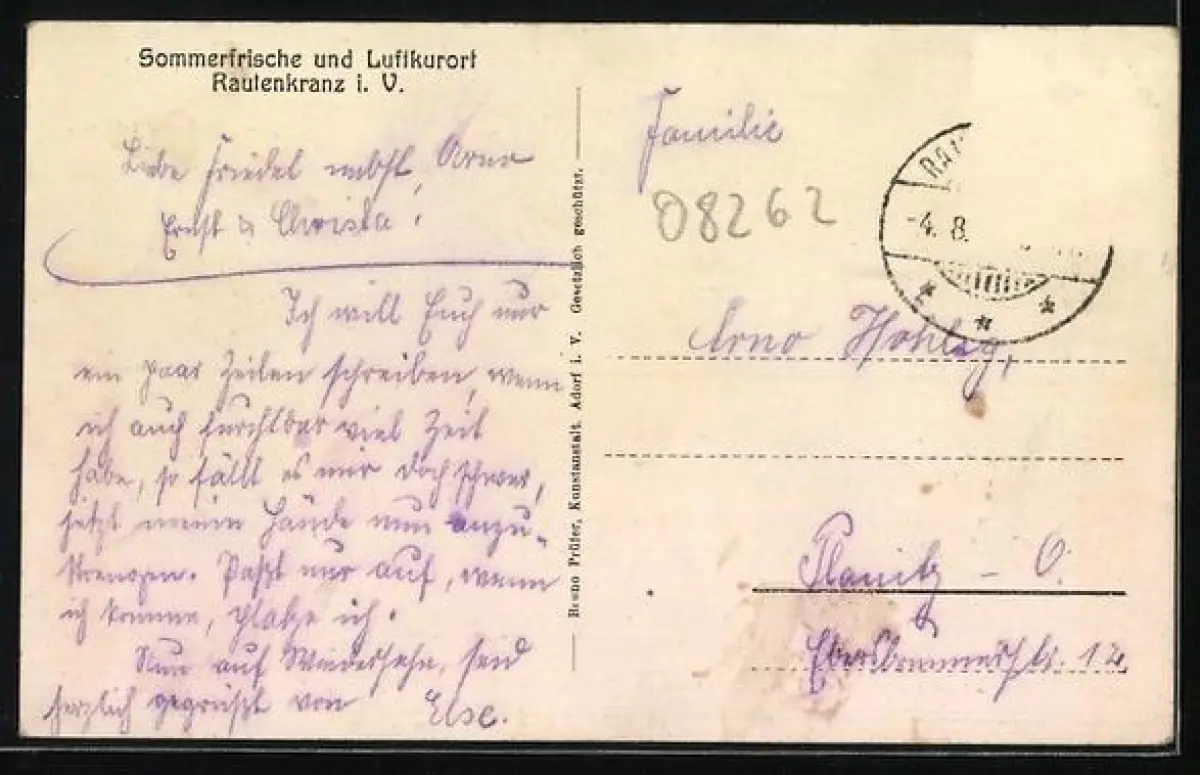 Sommerfrische und Luftkurort
Rautenkranz i. V.
Liebe Friedel nebst Arno
Ernst & Christa!
Ich will Euch nur
ein paar Zeilen schreiben, wenn
ich auch furchtbar viel Zeit
habe, so fällt es mir doch schwer,
jetzt meine Hände nun anzu-
strengen. Paßt nur auf, wenn
ich komme, platze ich.
Nun auf Wiedersehn, seid
herzlich gegrüßt von
Else.
Bruno Prüfer, Kunstanstalt, Adorf i. V. Gesetzlich geschützt.
Familie
08262
-4. 8.
Arno
Planitz - O.
12